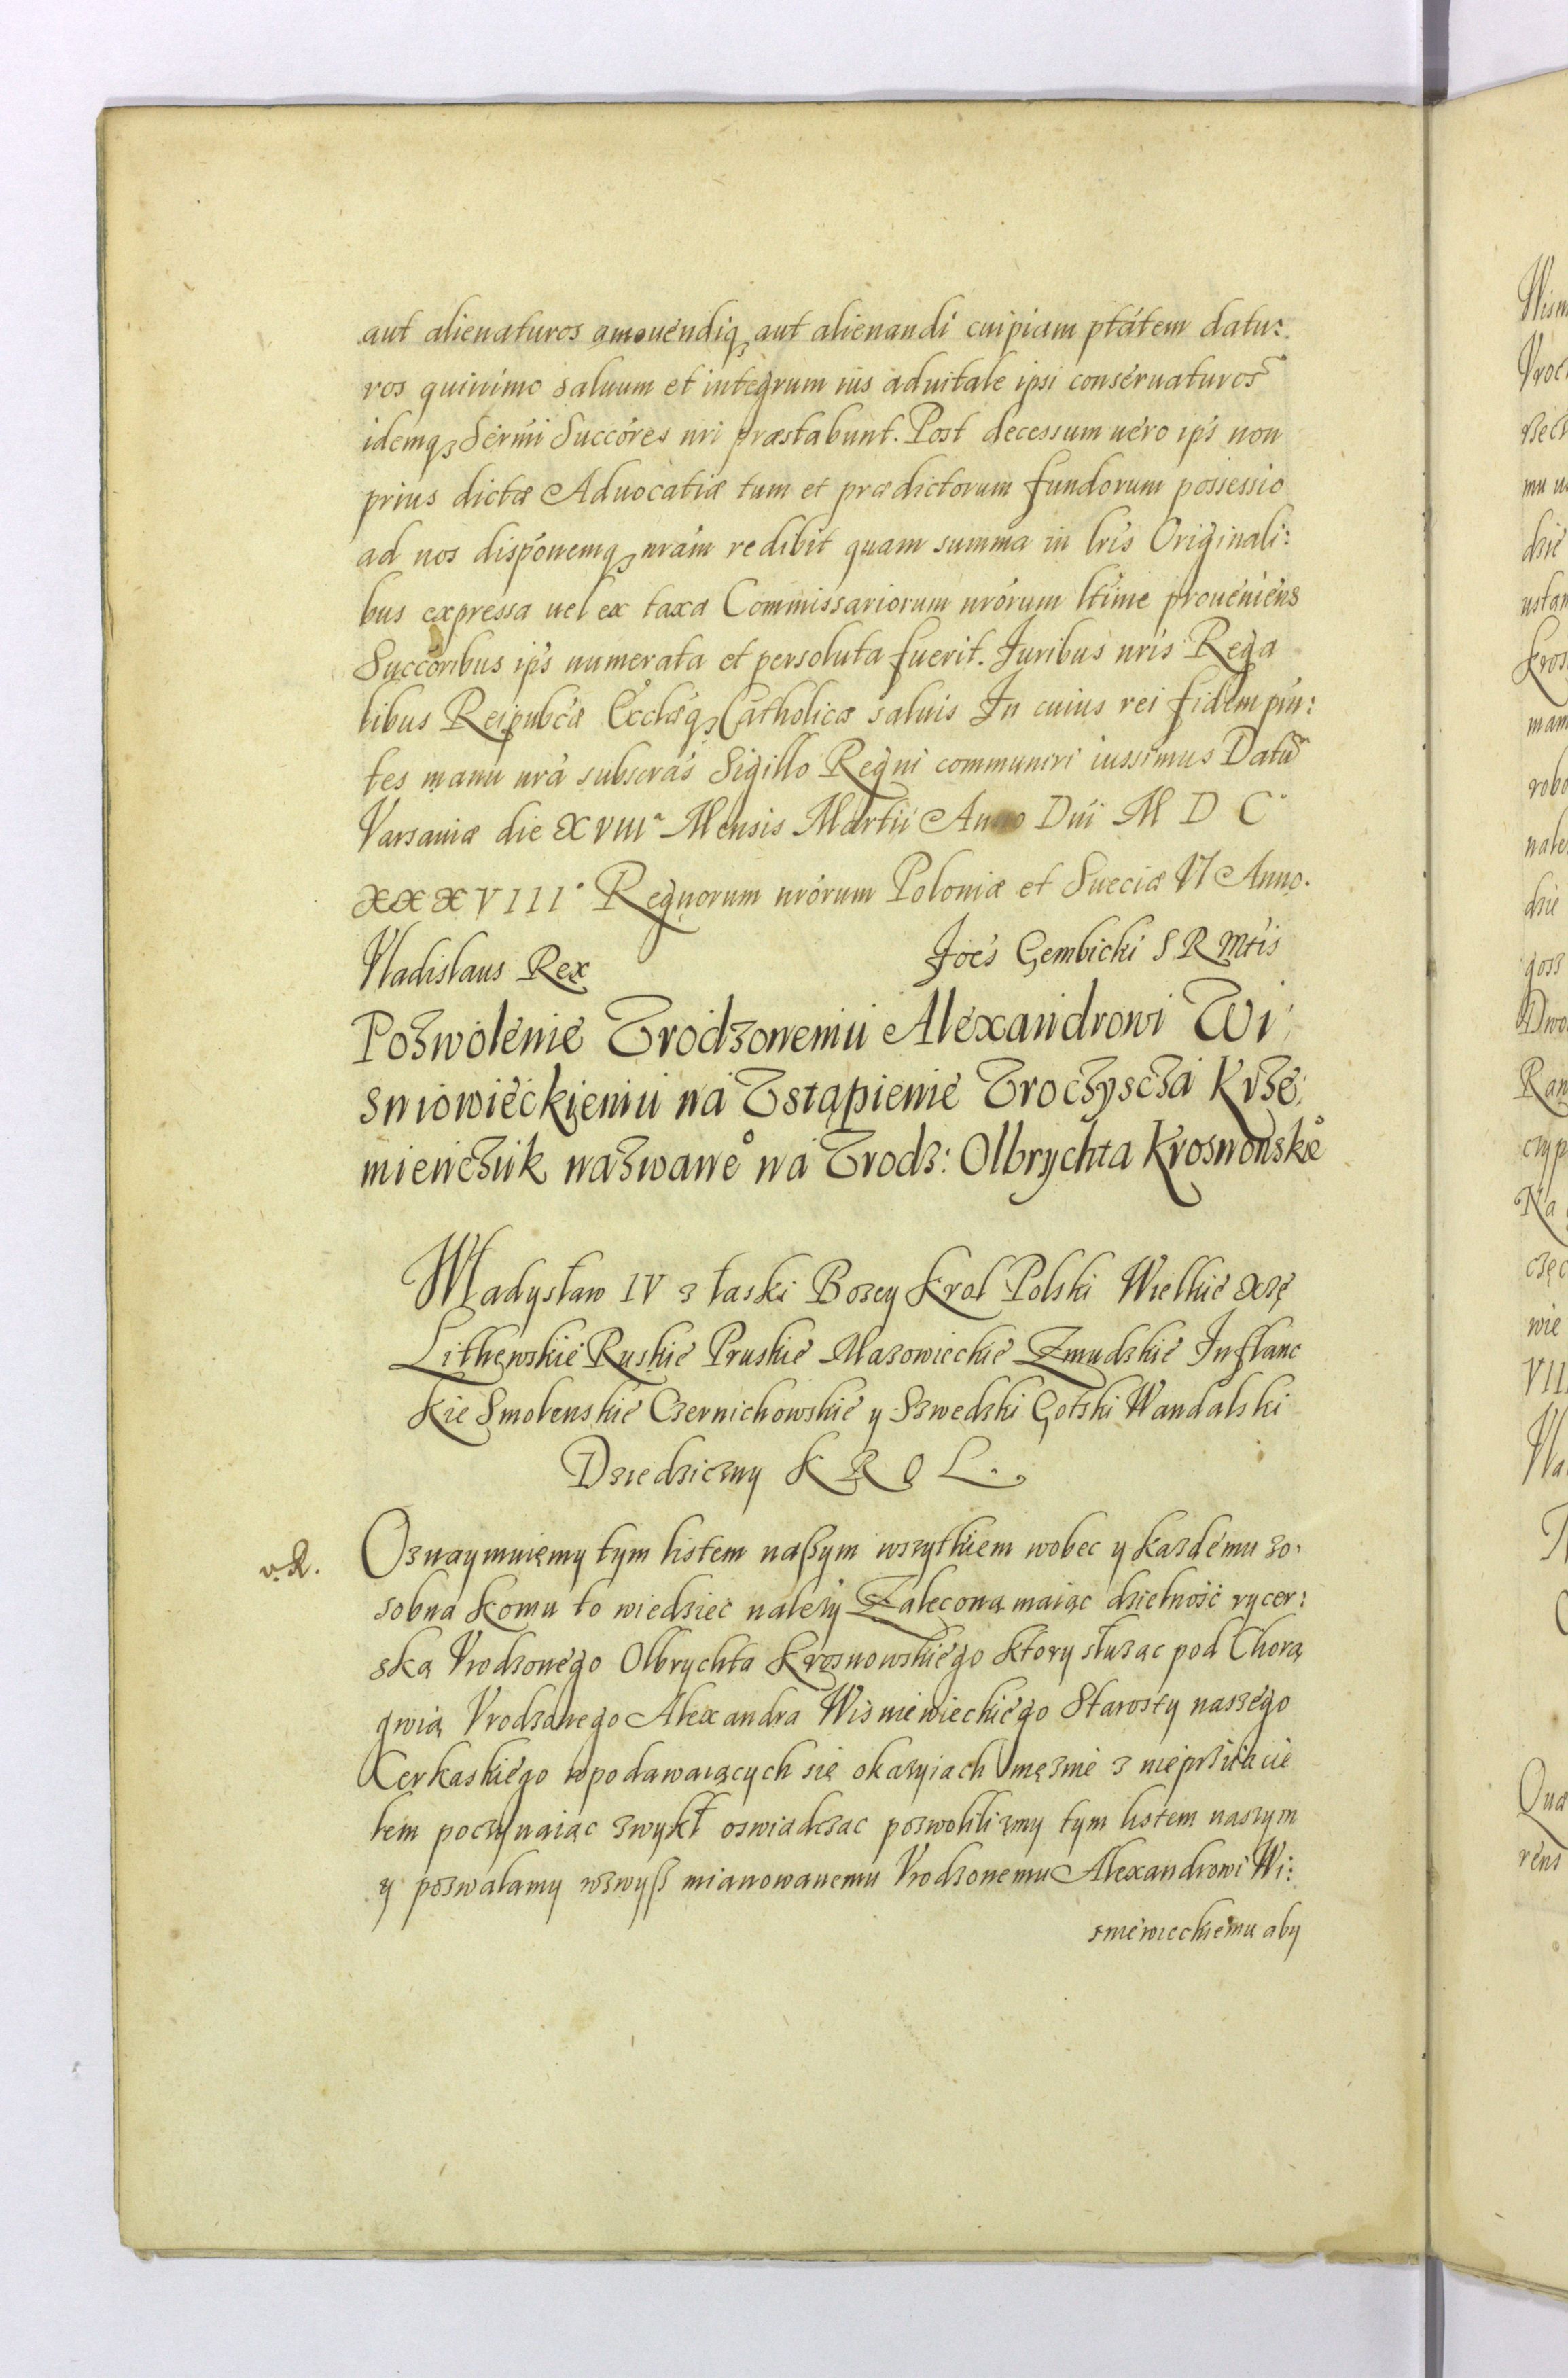 aut alienaturos amouendiq₃ aut alienandi cuipiam ptátem datu:
ros quinimo saluum et integrum ius aduitale ipsi conseruaturos
idemq₃ Sermi Succóres nri præstabunt. Post decessum uero ipś non
prius dictæ Aduocatiæ tum et prædictorum fundorum possessio
ad nos disponemq₃ nrám redibit quam summa in lris Originali:
bus expressa uel ex taxa Commissariorum nrórum ltime proueniens
Succóribus ipś numerata et persoluta fuerit. Juribus nris Rega
libus Reipubcæ Ecclæq₃ Catholicæ saluis In cuius rei fidem pńn:
tes manu nrá subscrás Sigillo Regni communiri iussimus Datū
Varsauiæ die XVIIIa Mensis Martii Anno Dńi M D C°
XXXVIII° Regnorum nrórum Poloniæ et Sueciæ VI Anno.
Vladislaus Rex Joés Gembicki S R Mtis
Pozwolenie Vrodzonemu Alexandrowi Wi
sniowieckiemu na Vstąpienie Vroczyscza Krze:
mienczuk nazwane° na Vrodz: Olbrychta Krosnowske°
Władysław IV z łaski Bozey Krol Polski Wielkie Xzę
Lithewskie Ruskie Pruskie Mazowieckie Zmudzkie Inflanc
kie Smolenskie Czernichowskie y Szwedzki Gotski Wandalski
Dziedziczny K R O L.
v. R. Oznaymuięmy tym listem naßym wszytkiem wobec y kazdému zo:
sobna komu to wiedziec nalezy Zalecona maiąc dzielność rycer:
ską Vrodzonégo Olbrychta Krosnowskiégo ktory słuząc pod Chorą
gwią Vrodzonego Alexandra Wisniewieckiégo Starosty naszégo
Cerkaskiégo w podawaiących się okazyiach męznie z nieprziiacie
lem poczynaiąc zwykł oswiadczac pozwolilizmy tym listem naszym
y pozwalamy wzwyß mianowanemu Vrodzonemu Alexandrowi Wi:
sniewieckiemu aby